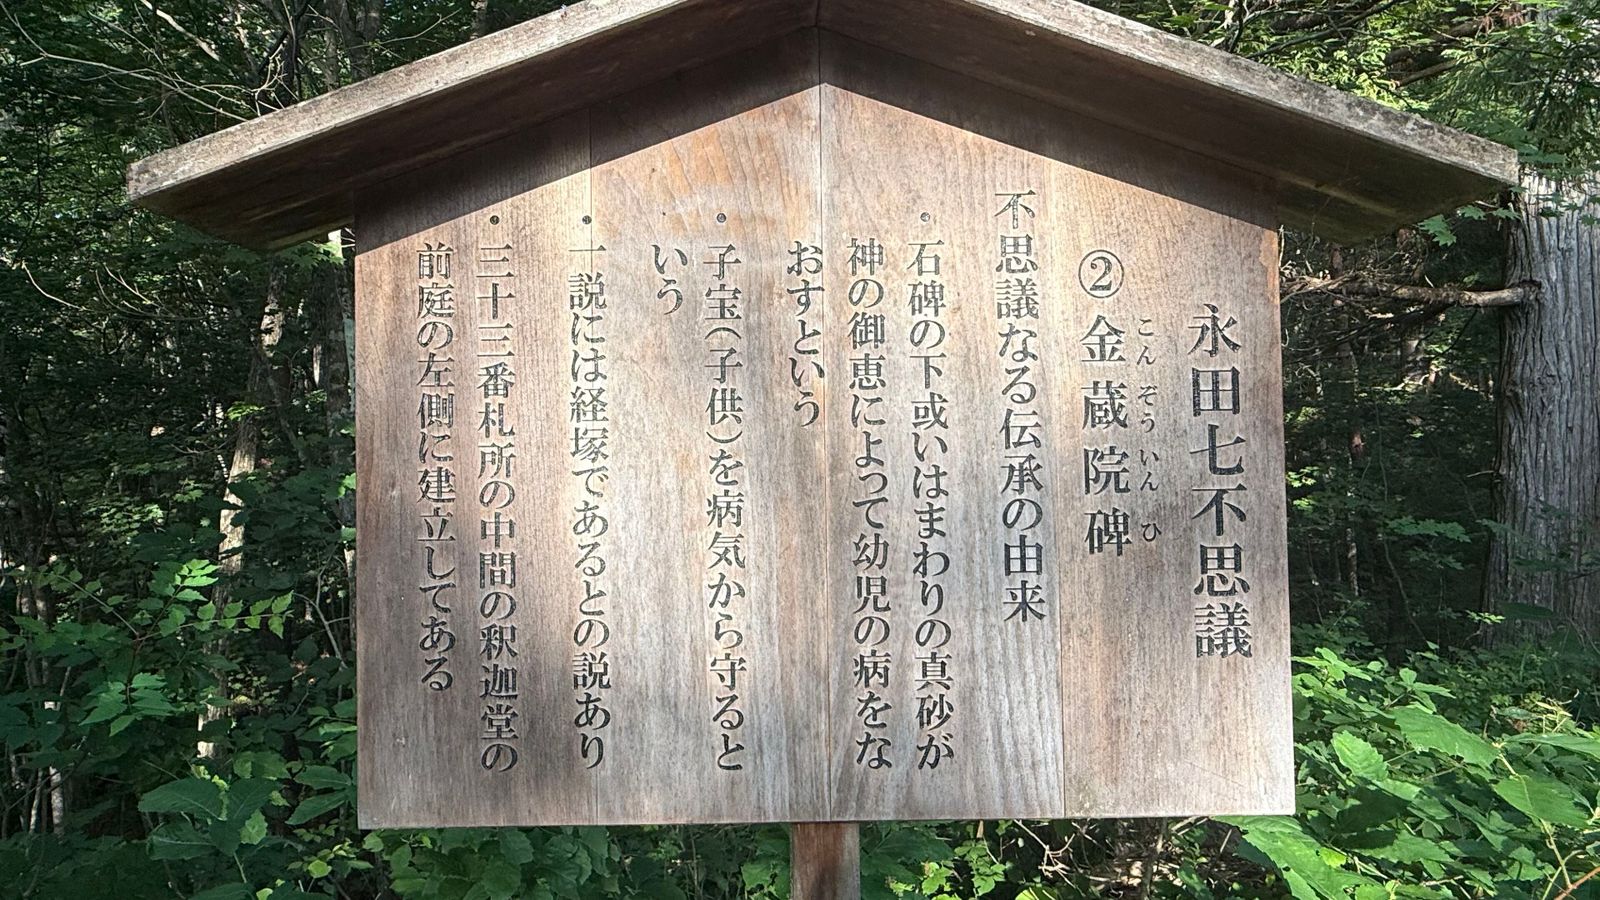 永田七不思議
②金蔵院碑
こんぞういん ひ
不思議なる伝承の由来
・石碑の下或いはまわりの真砂が
神の御恵によって幼児の病をな
おすという
・子宝(子供)を病気から守ると
いう
・一説には経塚であるとの説あり
・三十三番札所の中間の釈迦堂の
前庭の左側に建立してある